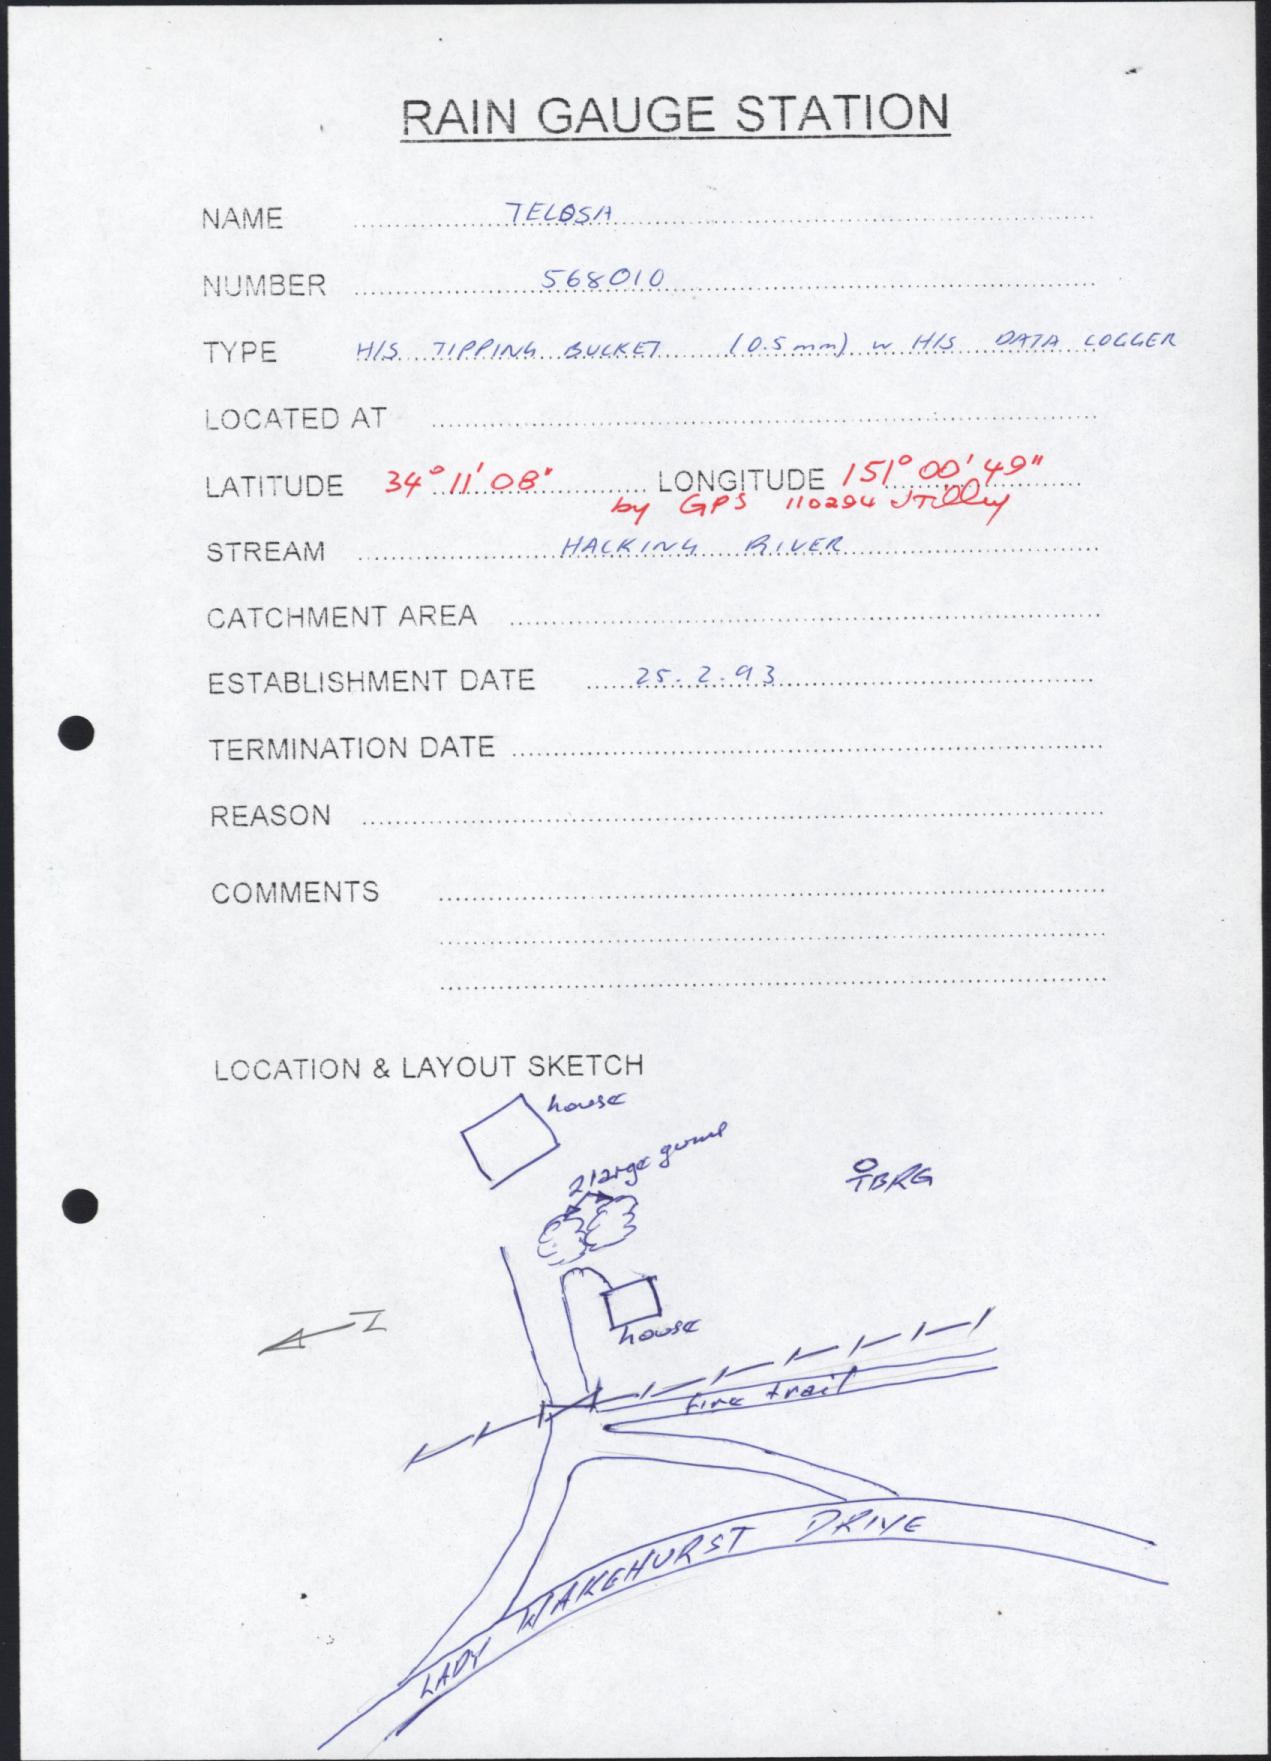 RAIN GAUGE STATION
NAME TELOSA
NUMBER 568010
TYPE H/S TIPPING BUCKET (0.5mm) w H/S DATA LOGGER
LOCATED AT
LATITUDE 34° 11' 08" LONGITUDE 151° 00' 49"
by GPS 110294 JTilley
STREAM HACKING RIVER
CATCHMENT AREA
ESTABLISHMENT DATE 25.2.93
TERMINATION DATE
REASON
COMMENTS
LOCATION & LAYOUT SKETCH
house
2 large gums
TBRG
house
fire trail
LADY WAKEHURST DRIVE